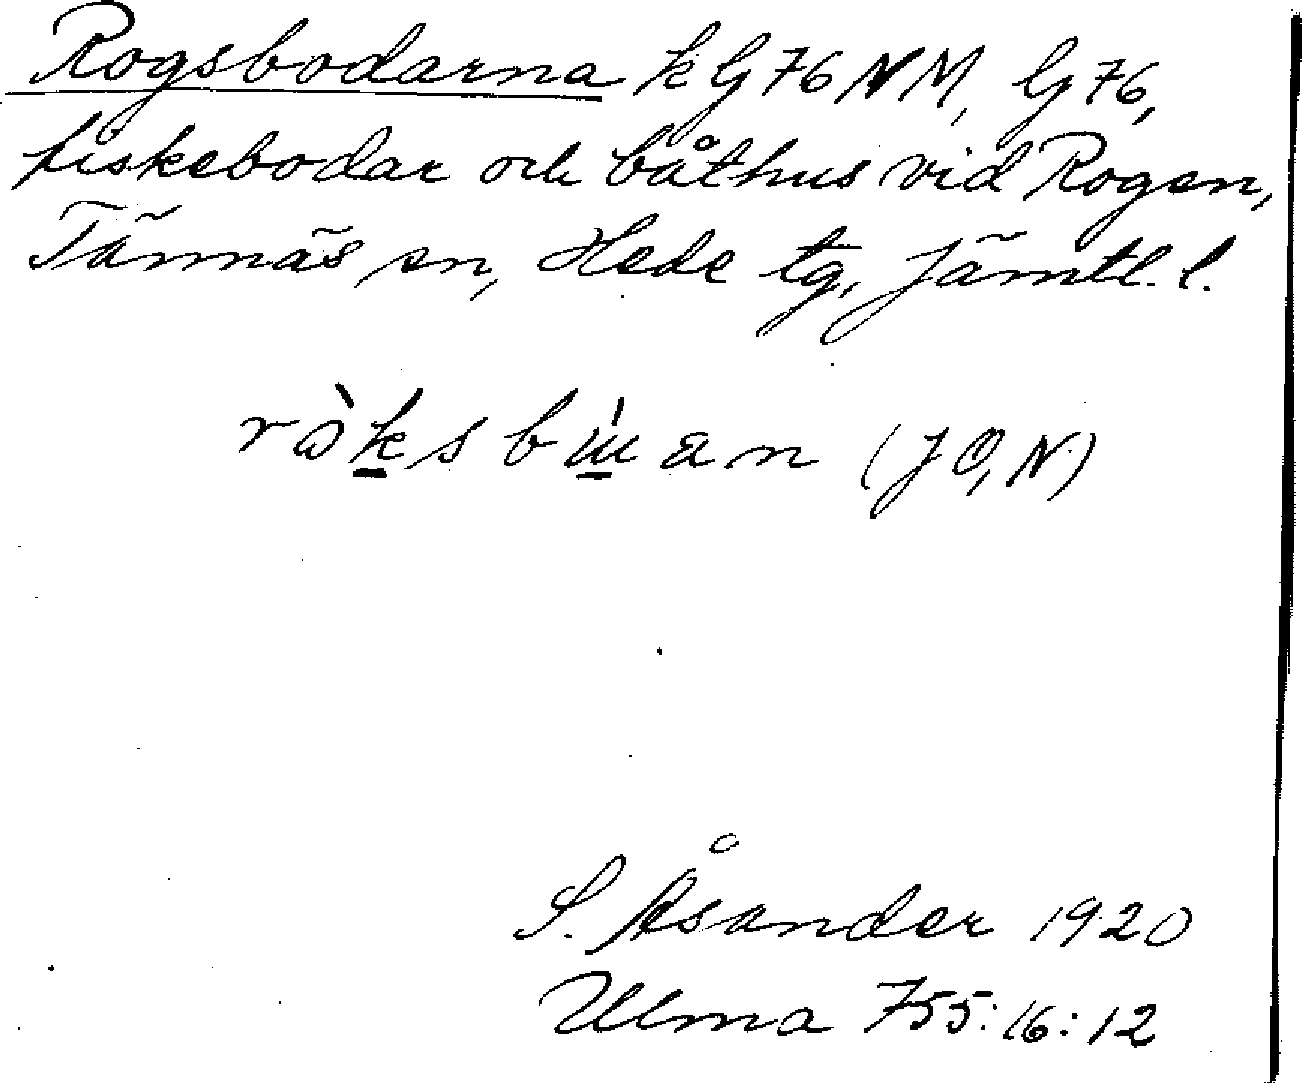 Rogsbodarna k G76NM, G76,
fiskebodar och båthus vid Rogen,
Tännäs sn, Hede tg, Jämtl. l.
(JO, N)
S. Åsander 1920
Ulma 755:16:12